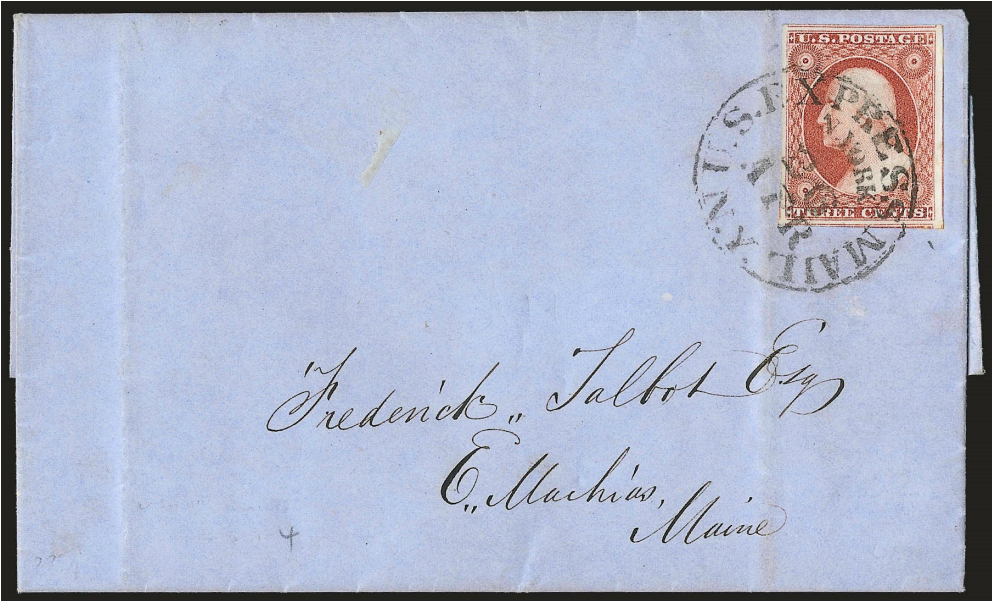 U.S. POSTAGE
THREE CENTS
U.S. EXPRESS MAIL
N. YORK
Frederick „ Talbot Esq
E„ Machias,
Maine
4